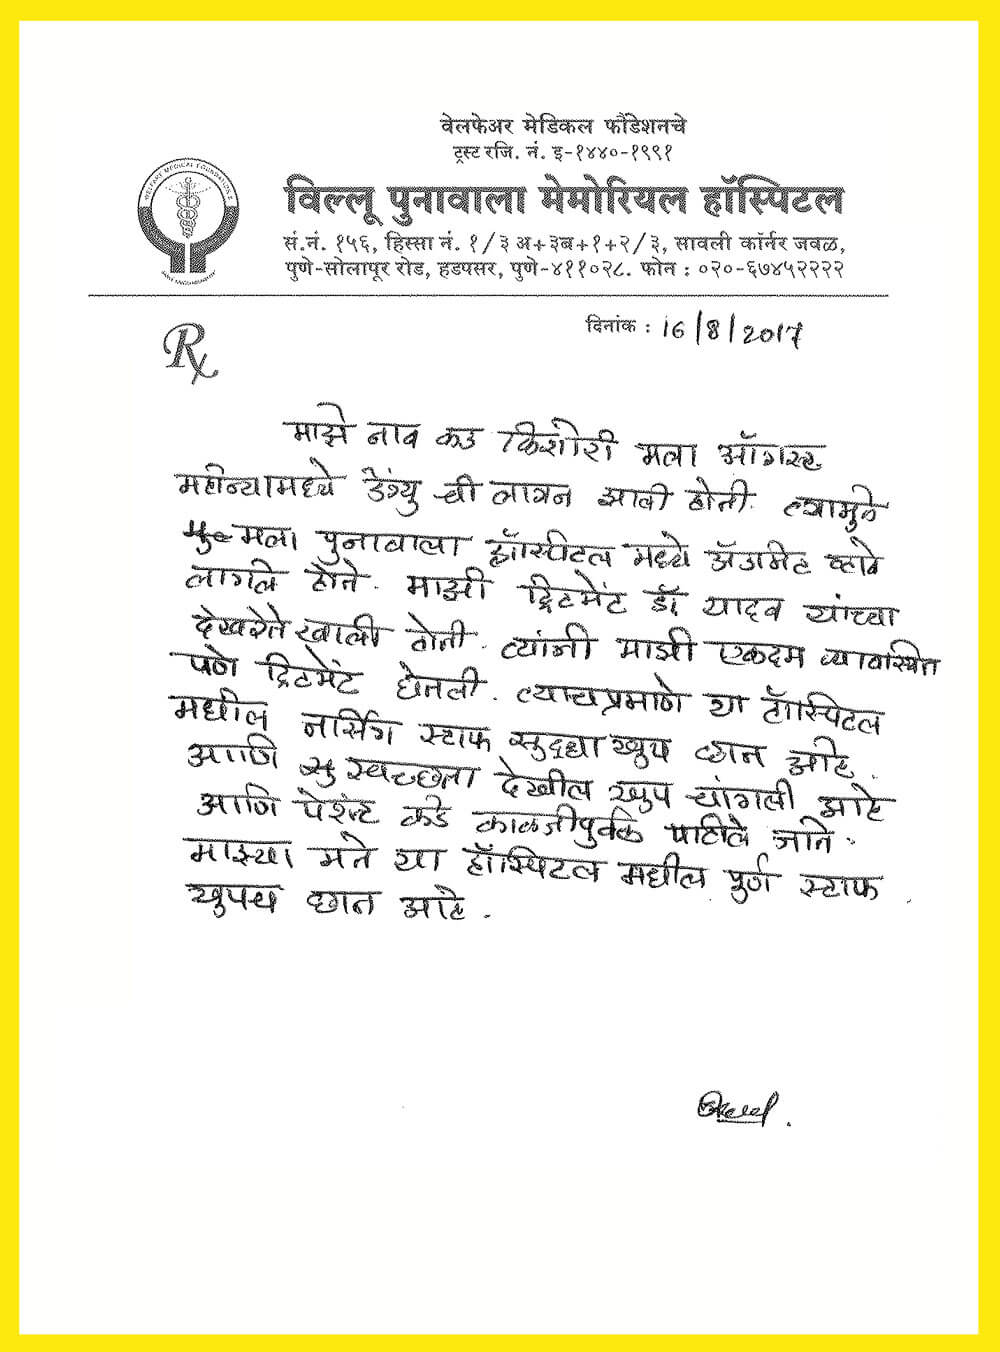 वेलफेअर मेडिकल फौंडेशनचे
ट्रस्ट रजि. नं. इ-१४४०-१९९१
WELFARE MEDICAL FOUNDATION'S
विल्लू पुनावाला मेमोरियल हॉस्पिटल
सं.नं. १५६, हिस्सा नं. १/३ अ+३ब+१+२/३, सावली कॉर्नर जवळ,
पुणे-सोलापूर रोड, हडपसर, पुणे-४११०२८. फोन : ०२०-६७४५२२२२
दिनांक : 16/8/2017
Rx
माझे नाव कउ किशोरी मला ऑगस्ट
महीन्यामध्ये डेंग्यु ची लागन झाली होती. त्यामुळे
मला पुनावाला हॉस्पीटल मध्ये ॲडमिट व्हावे
लागले होते. माझी ट्रिटमेंट डॉ यादव यांच्या
देखरेते खाली होती. त्यांनी माझी एकदम व्यावस्थित
पणे ट्रिटमेंट घेतली. त्याचप्रमाणे या हॉस्पिटल
मधील नर्सिंग स्टाफ सुद्धा खुप छान आहे.
आणि सु स्वच्छता देखील खुप चांगली आहे
आणि पेशंट कडे काळजीपुर्वक पाहीले जाते.
माझ्या मते या हॉस्पिटल मधील पुर्ण स्टाफ
खुपच छान आहे.